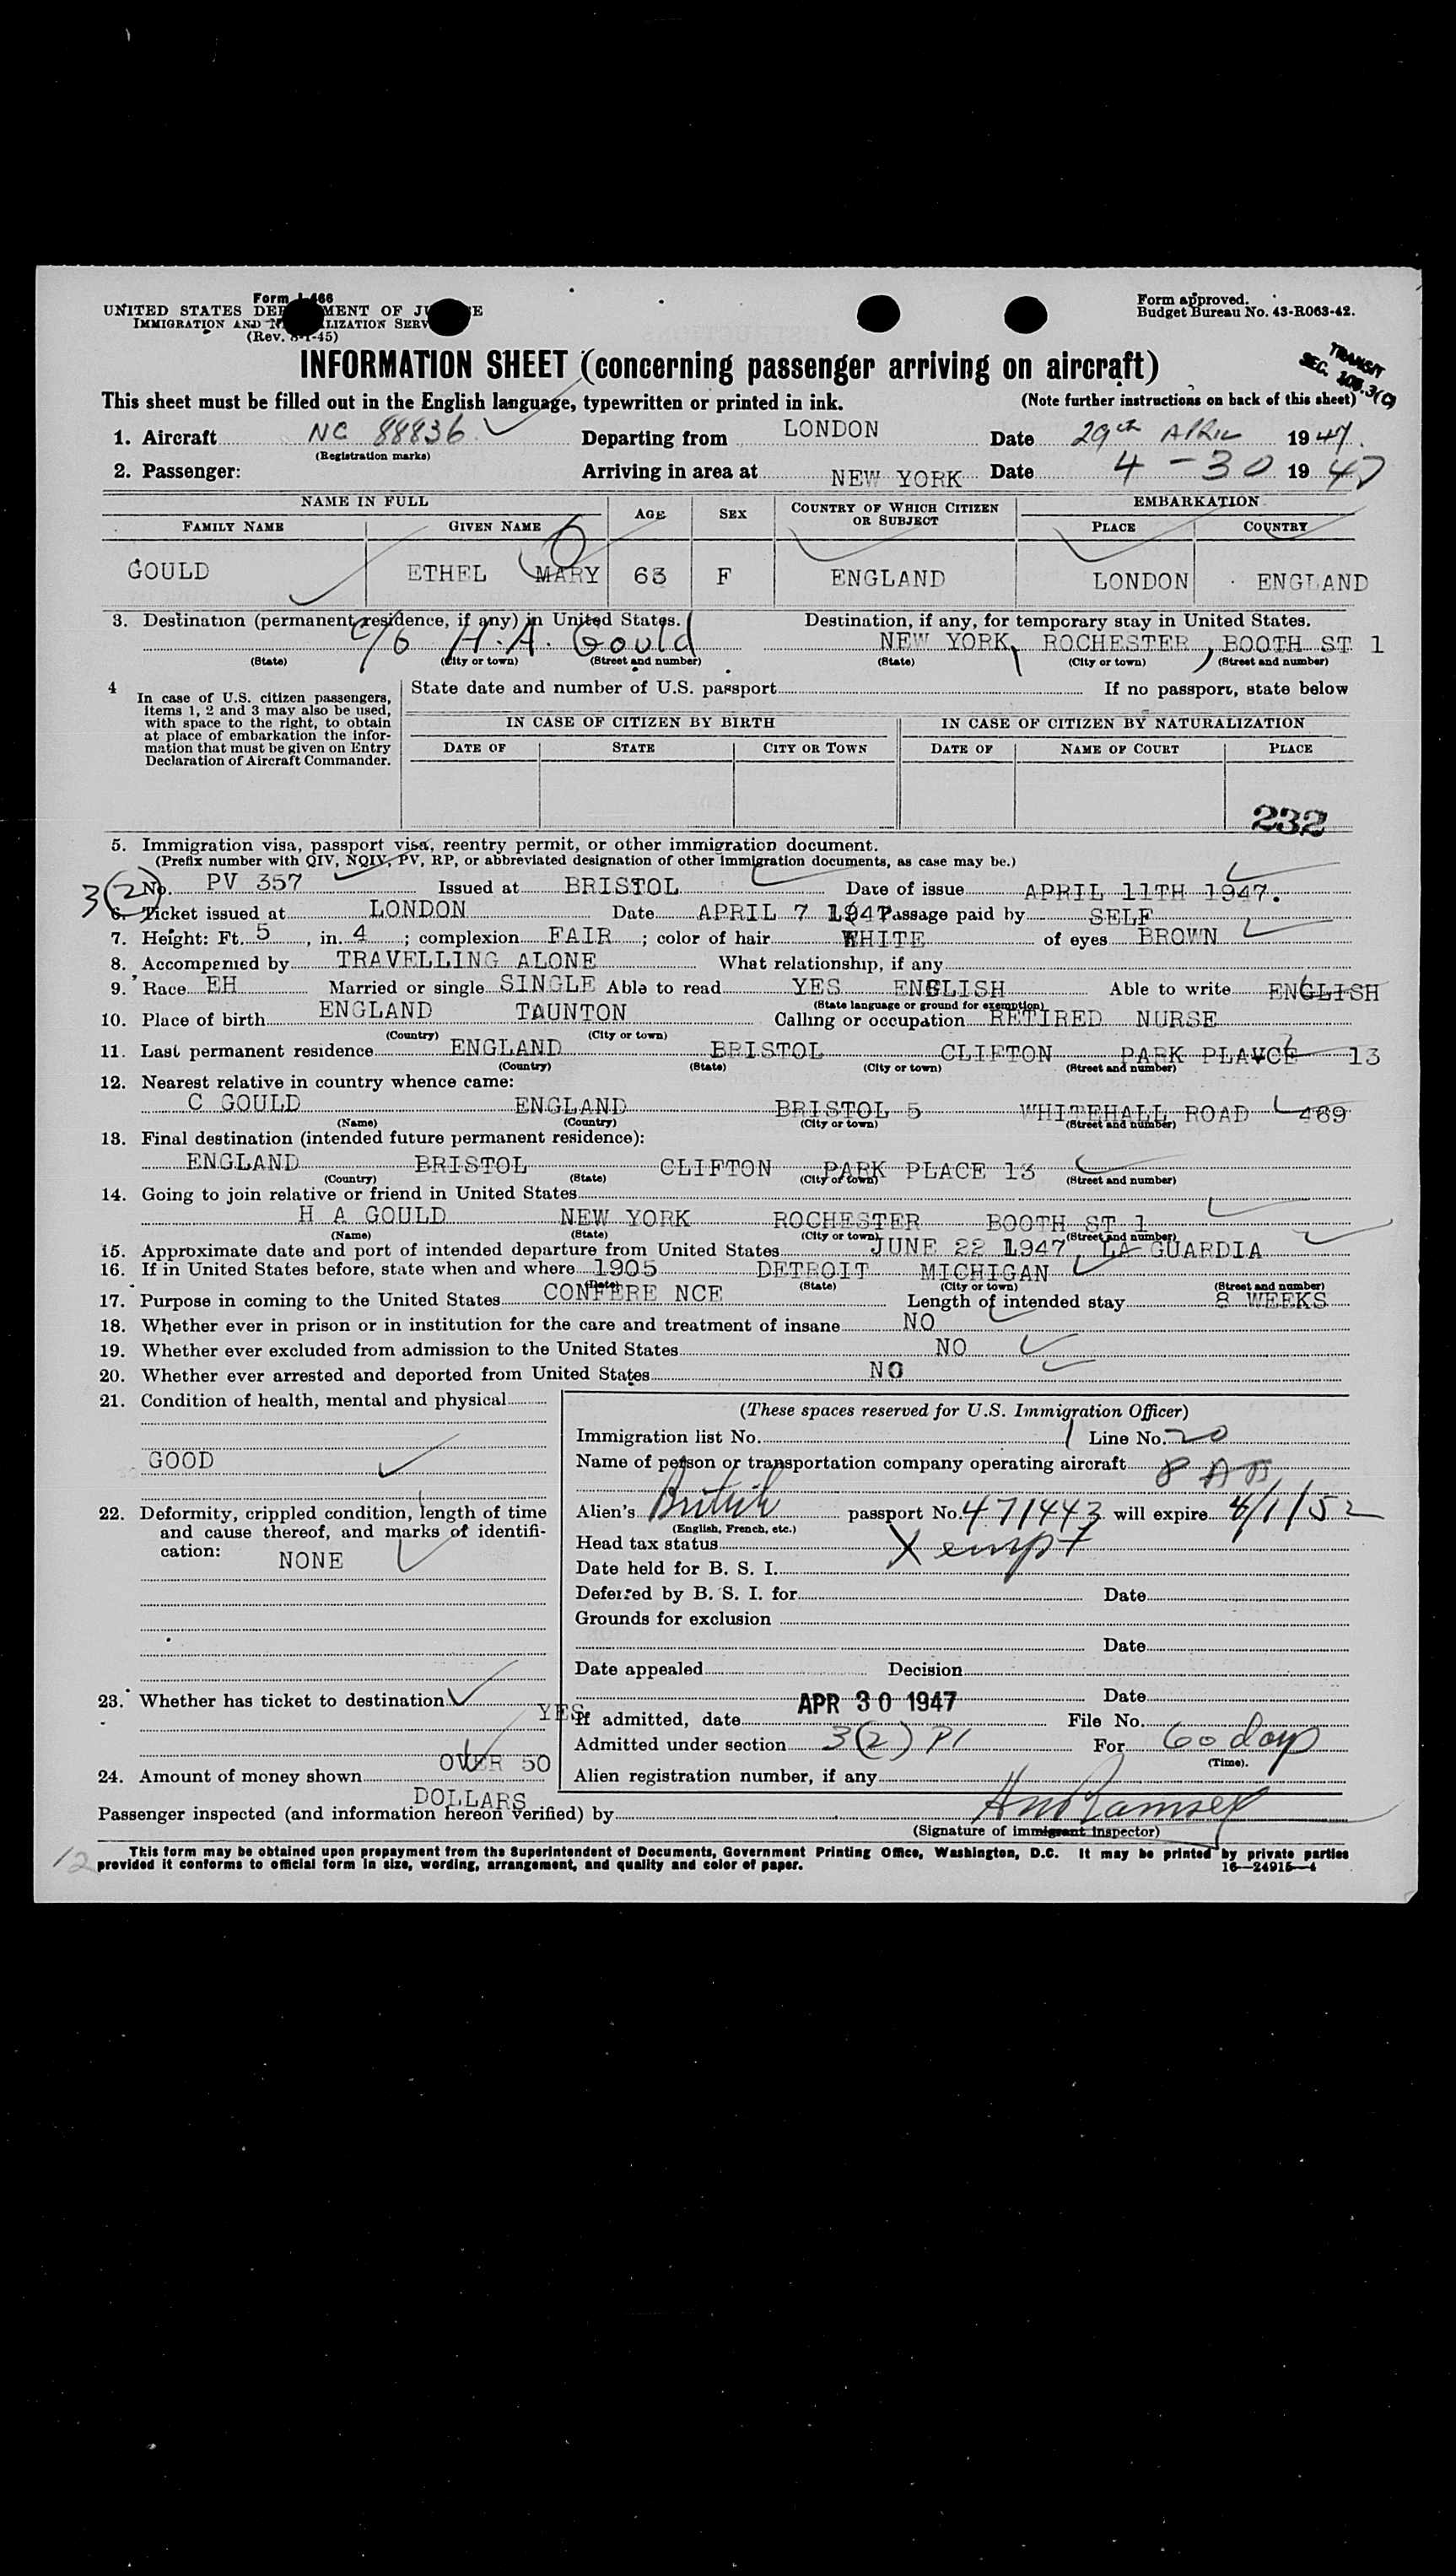 Form I-466
UNITED STATES DEPARTMENT OF JUSTICE
IMMIGRATION AND NATURALIZATION SERVICE
(Rev. 8-1-45)
Form approved.
Budget Bureau No. 43-R063-42.
INFORMATION SHEET (concerning passenger arriving on aircraft)
TRANSIT
SEC. 3(C)
This sheet must be filled out in the English language, typewritten or printed in ink. (Note further instructions on back of this sheet)
1. Aircraft NC 88836 Departing from LONDON Date 29th APRIL 1947.
(Registration marks)
2. Passenger: Arriving in area at NEW YORK Date 4-30 1947
NAME IN FULL AGE SEX COUNTRY OF WHICH CITIZEN OR SUBJECT EMBARKATION
FAMILY NAME GIVEN NAME PLACE COUNTRY
GOULD ETHEL MARY 63 F ENGLAND LONDON ENGLAND
3. Destination (permanent residence, if any) in United States. Destination, if any, for temporary stay in United States.
c/o H.A. Gould NEW YORK, ROCHESTER, BOOTH ST 1
(State) (City or town) (Street and number) (State) (City or town) (Street and number)
4 In case of U.S. citizen passengers, items 1, 2 and 3 may also be used, with space to the right, to obtain at place of embarkation the information that must be given on Entry Declaration of Aircraft Commander.
State date and number of U.S. passport If no passport, state below
IN CASE OF CITIZEN BY BIRTH IN CASE OF CITIZEN BY NATURALIZATION
DATE OF STATE CITY OR TOWN DATE OF NAME OF COURT PLACE
232
5. Immigration visa, passport visa, reentry permit, or other immigration document.
(Prefix number with QIV, NQIV, PV, RP, or abbreviated designation of other immigration documents, as case may be.)
3(2) No. PV 357 Issued at BRISTOL Date of issue APRIL 11TH 1947.
6. Ticket issued at LONDON Date APRIL 7 1947 Passage paid by SELF
7. Height: Ft. 5, in. 4; complexion FAIR; color of hair WHITE of eyes BROWN
8. Accompanied by TRAVELLING ALONE What relationship, if any
9. Race EH Married or single SINGLE Able to read YES ENGLISH Able to write ENGLISH
(State language or ground for exemption)
10. Place of birth ENGLAND TAUNTON Calling or occupation RETIRED NURSE
(Country) (City or town)
11. Last permanent residence ENGLAND BRISTOL CLIFTON PARK PLAVCE 13
(Country) (State) (City or town) (Street and number)
12. Nearest relative in country whence came:
C GOULD ENGLAND BRISTOL 5 WHITEHALL ROAD 469
(Name) (Country) (City or town) (Street and number)
13. Final destination (intended future permanent residence):
ENGLAND BRISTOL CLIFTON PARK PLACE 13
(Country) (State) (City or town) (Street and number)
14. Going to join relative or friend in United States
H A GOULD NEW YORK ROCHESTER BOOTH ST 1
(Name) (State) (City or town) (Street and number)
15. Approximate date and port of intended departure from United States JUNE 22 1947, LA GUARDIA
16. If in United States before, state when and where 1905 DETROIT MICHIGAN
(Date) (State) (City or town) (Street and number)
17. Purpose in coming to the United States CONFERE NCE Length of intended stay 8 WEEKS
18. Whether ever in prison or in institution for the care and treatment of insane NO
19. Whether ever excluded from admission to the United States NO
20. Whether ever arrested and deported from United States NO
21. Condition of health, mental and physical
GOOD
22. Deformity, crippled condition, length of time
and cause thereof, and marks of identifi-
cation: NONE
23. Whether has ticket to destination
YES
OVER 50
24. Amount of money shown
DOLLARS
(These spaces reserved for U.S. Immigration Officer)
Immigration list No. 1 Line No. 20
Name of person or transportation company operating aircraft
Alien's British passport No. 471443 will expire 4/1/52
(English, French, etc.)
Head tax status Xempt
Date held for B. S. I.
Deferred by B. S. I. for Date
Grounds for exclusion
Date
Date appealed Decision
Date
If admitted, date APR 30 1947 File No.
Admitted under section 3(2) P1 For 60 days
(Time).
Alien registration number, if any
Passenger inspected (and information hereon verified) by
(Signature of immigrant inspector)
12
This form may be obtained upon prepayment from the Superintendent of Documents, Government Printing Office, Washington, D.C. It may be printed by private parties
provided it conforms to official form in size, wording, arrangement, and quality and color of paper. 16—24915-4